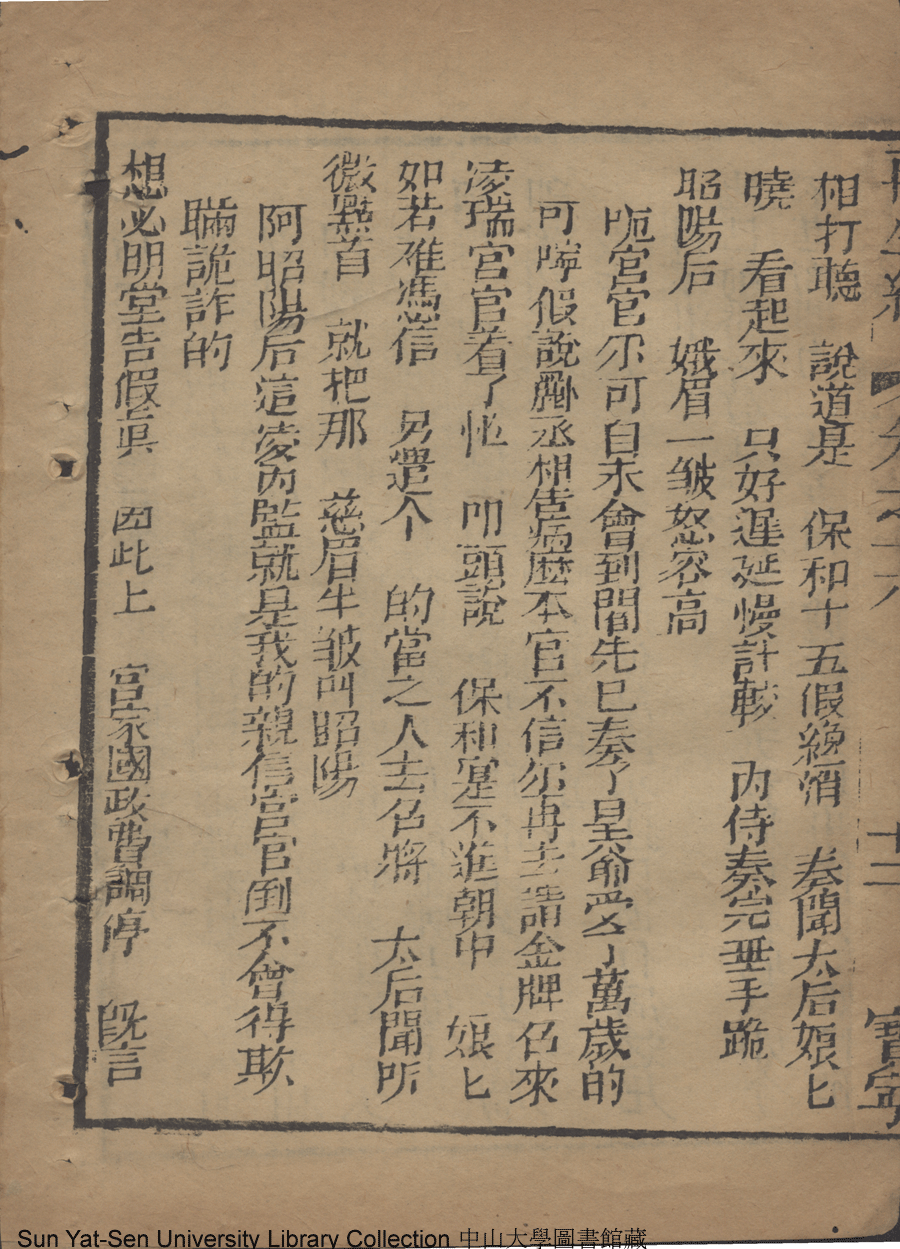 再生緣 卷之六 十二 寶寧
相打聽 說道是 保和十五假纔消 奏聞太后娘匕
曉 看起來 只好遲延慢計較 內侍奏完垂手跪
昭陽后 娥眉一皱怒容高
唗宮官尔可自未會到閣先已奏了皇爺受了萬歲的
可嚀假說酈丞相告病麽本官不信尔再去請金牌召來
凌瑞宮官着了忙 叩頭說 保和寔不進朝中 娘匕
如若难馮信 另遣个 的當之人去召將 太后聞听
微點首 就把那 慈眉半皱叫昭陽
阿昭陽后這凌內監就是我的親信宮官倒不曾得欺
瞞詭詐的
想必明堂告假眞 因此上 官家國政費調停 既言
Sun Yat-Sen University Library Collection 中山大學圖書館藏